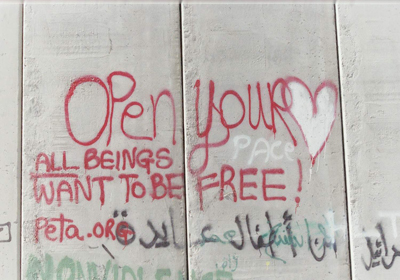 Open your
PACE
ALL BEINGS
WANT TO BE FREE!
Peta.ORG
NONVIOLENCE